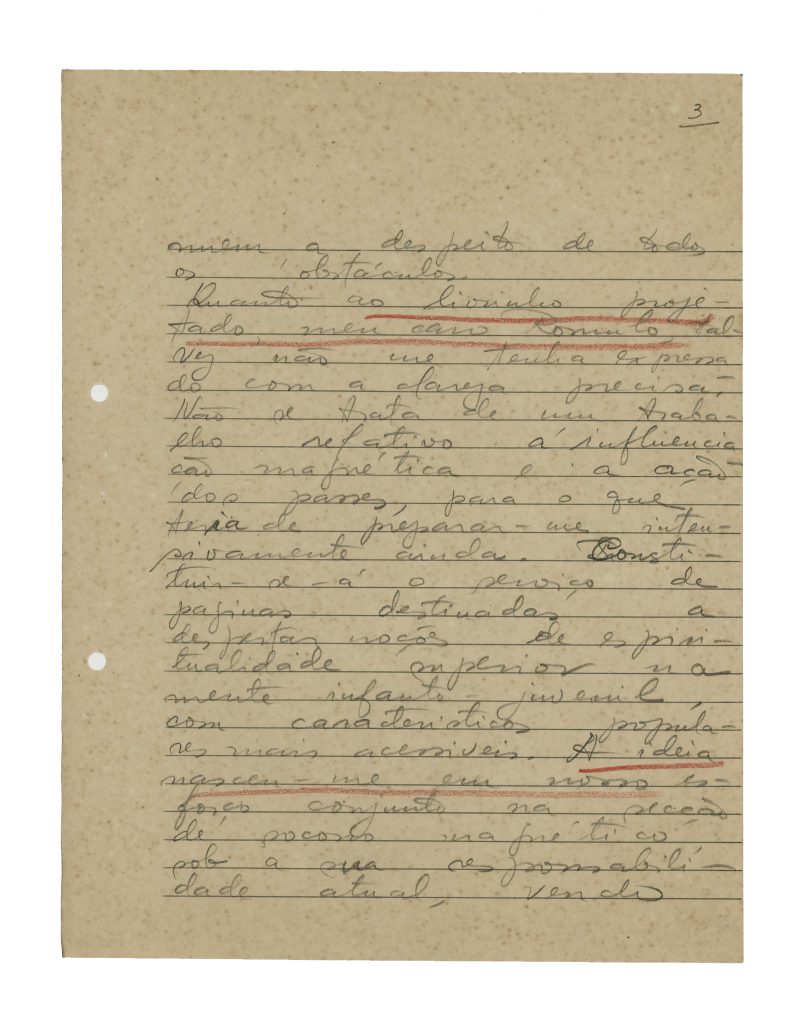 3
nuem a despeito de todos
os obstáculos.
Quanto ao livrinho proje-
tado, meu caro Romulo, tal-
vez não me tenha expressa
do com a clareza precisa.
Não se trata de um traba-
lho relativo á influencia
ção magnética e á ação
dos passes, para o que
teria de preparar-me inten-
sivamente ainda. Consti-
tuir-se-á o serviço de
paginas destinadas a
despertar noções de espiri-
tualidade superior na
mente infanto-juvenil,
com caracteristicos popula-
res mais acessiveis. A ideia
nasceu-me em nosso es-
forço conjunto na secção
de socorro magnético
sob a sua responsabili-
dade atual, vendo